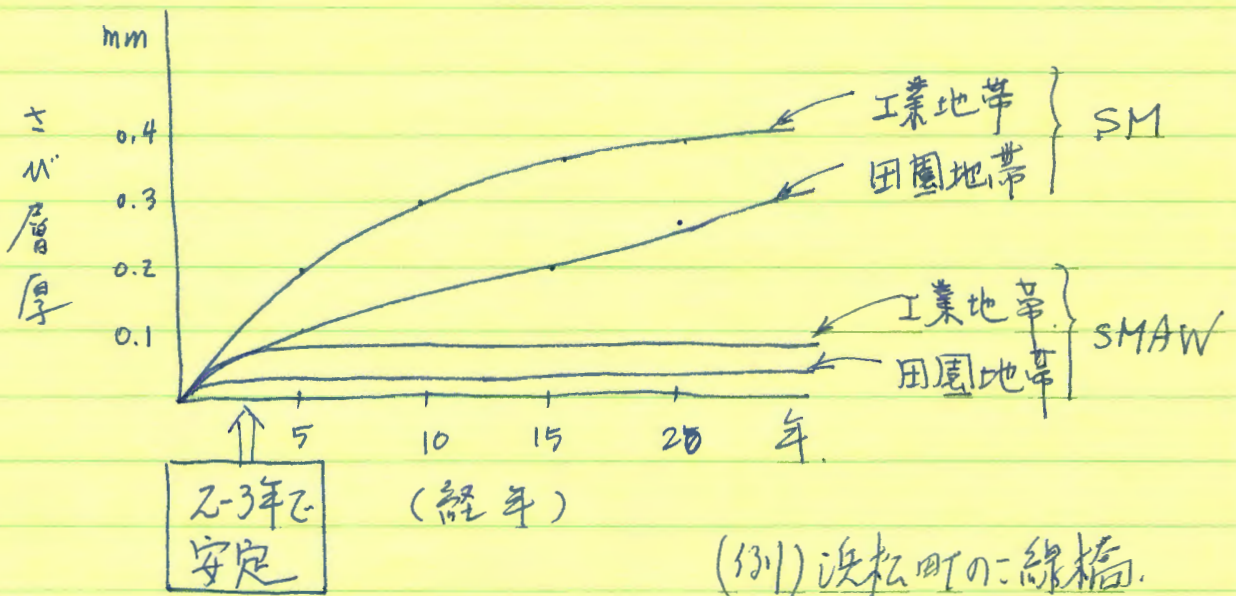 mm
さび層厚
0.4
0.3
0.2
0.1
工業地帯
田園地帯
SM
工業地帯
田園地帯
SMAW
5 10 15 20 年.
(経年)
2-3年で
安定
(例) 浜松町のこ線橋.